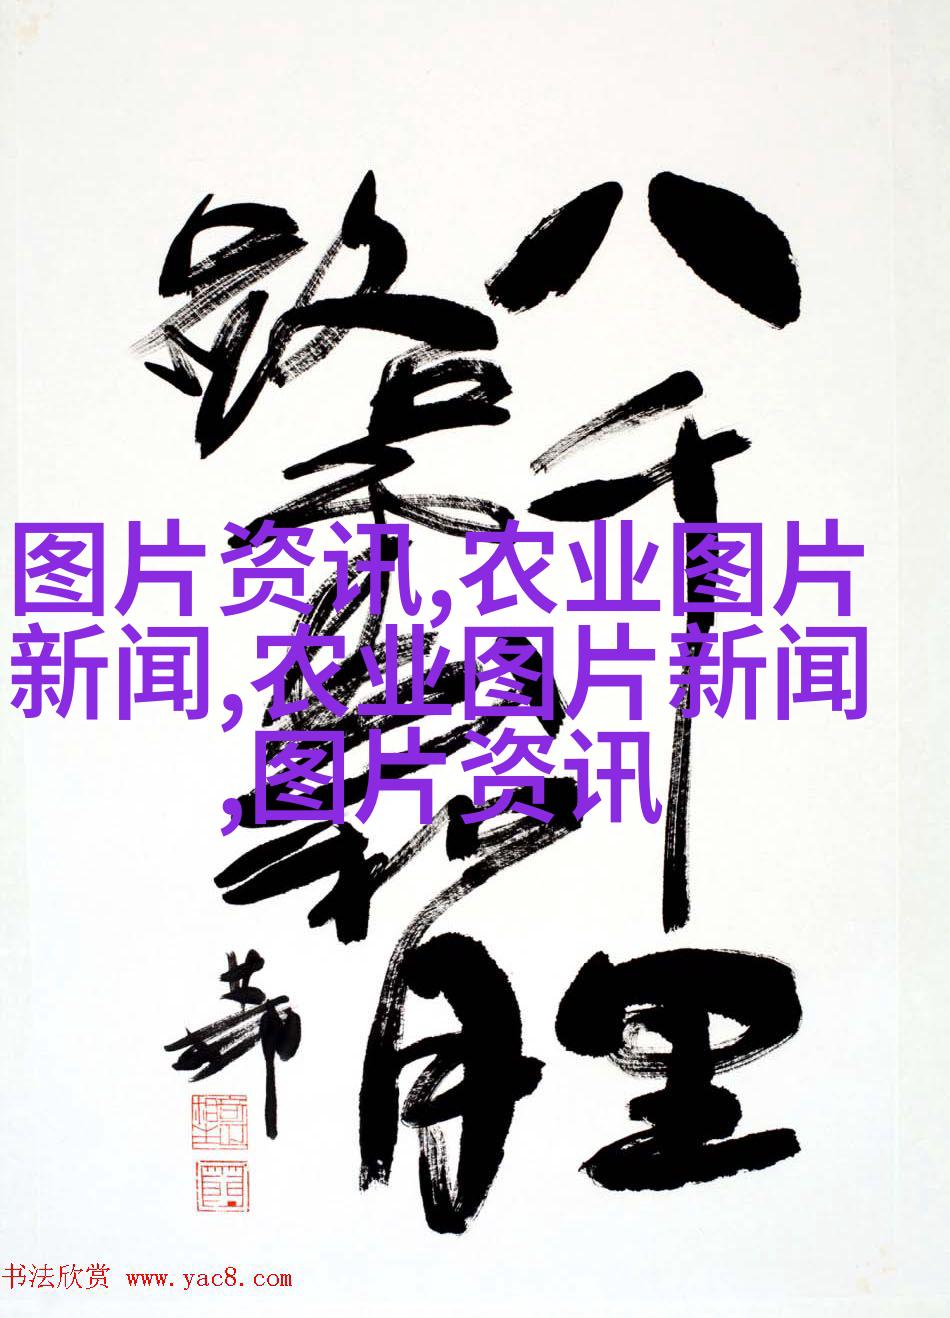 八千里
路雲和月
图片资讯,农业图片
新闻,农业图片新闻
,图片资讯
书法欣赏 www.yac8.com